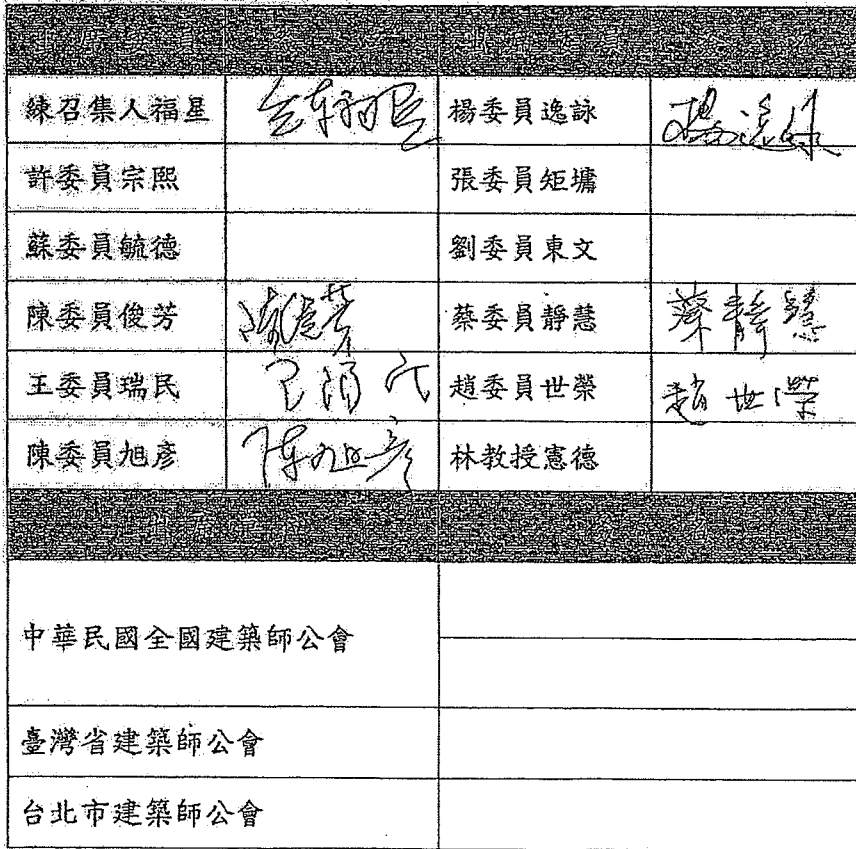 出席委員 簽名 出席委員 簽名
練召集人福星 練福星 楊委員逸詠 楊逸詠
許委員宗熙 張委員矩墉
蘇委員毓德 劉委員東文
陳委員俊芳 陳俊芳 蔡委員靜慧 蔡靜慧
王委員瑞民 王瑞民 趙委員世榮 趙世榮
陳委員旭彥 陳旭彥 林教授憲德
中華民國全國建築師公會
臺灣省建築師公會
台北市建築師公會